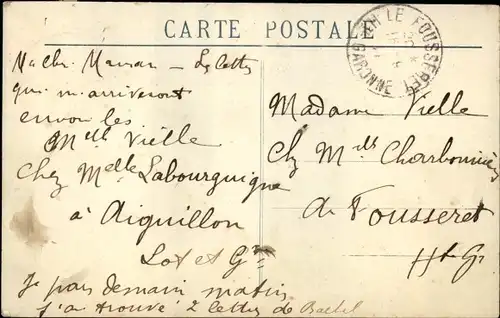 CARTE POSTALE
LE FOUSSERET
HTE GARONNE
Ma chr. Maman – Les lettres
qui m'arriveront
envoi les
Melle Vielle
Chez Melle Labourguigne
à Aiguillon
Lot et Gne
Je pars demain matin
j'ai trouvé 2 lettres de
Madame Vielle
Chz Mlls Charbonnières
du Fousseret
Hte G.